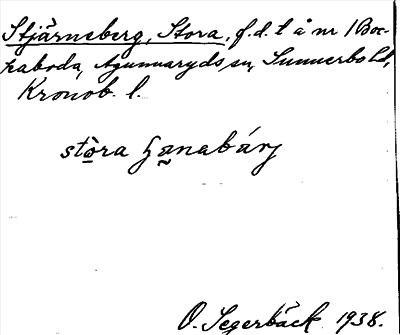 Stjärneberg, Stora, f.d. t å nr 1 Boc-
kaboda, Agunnaryds sn, Sunnerbo hd,
Kronob. l.
stòra ʃänabárj
O. Segerbäck 1938.